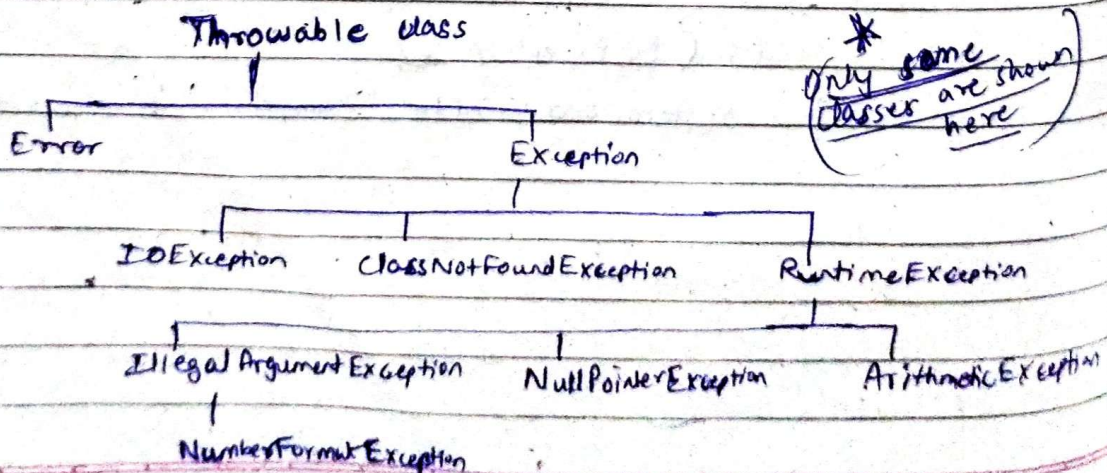 Throwable class
*
Only some
classes are shown
here
Error
Exception
IOException
ClassNotFoundException
RuntimeException
IllegalArgumentException
NullPointerException
ArithmeticException
NumberFormatException